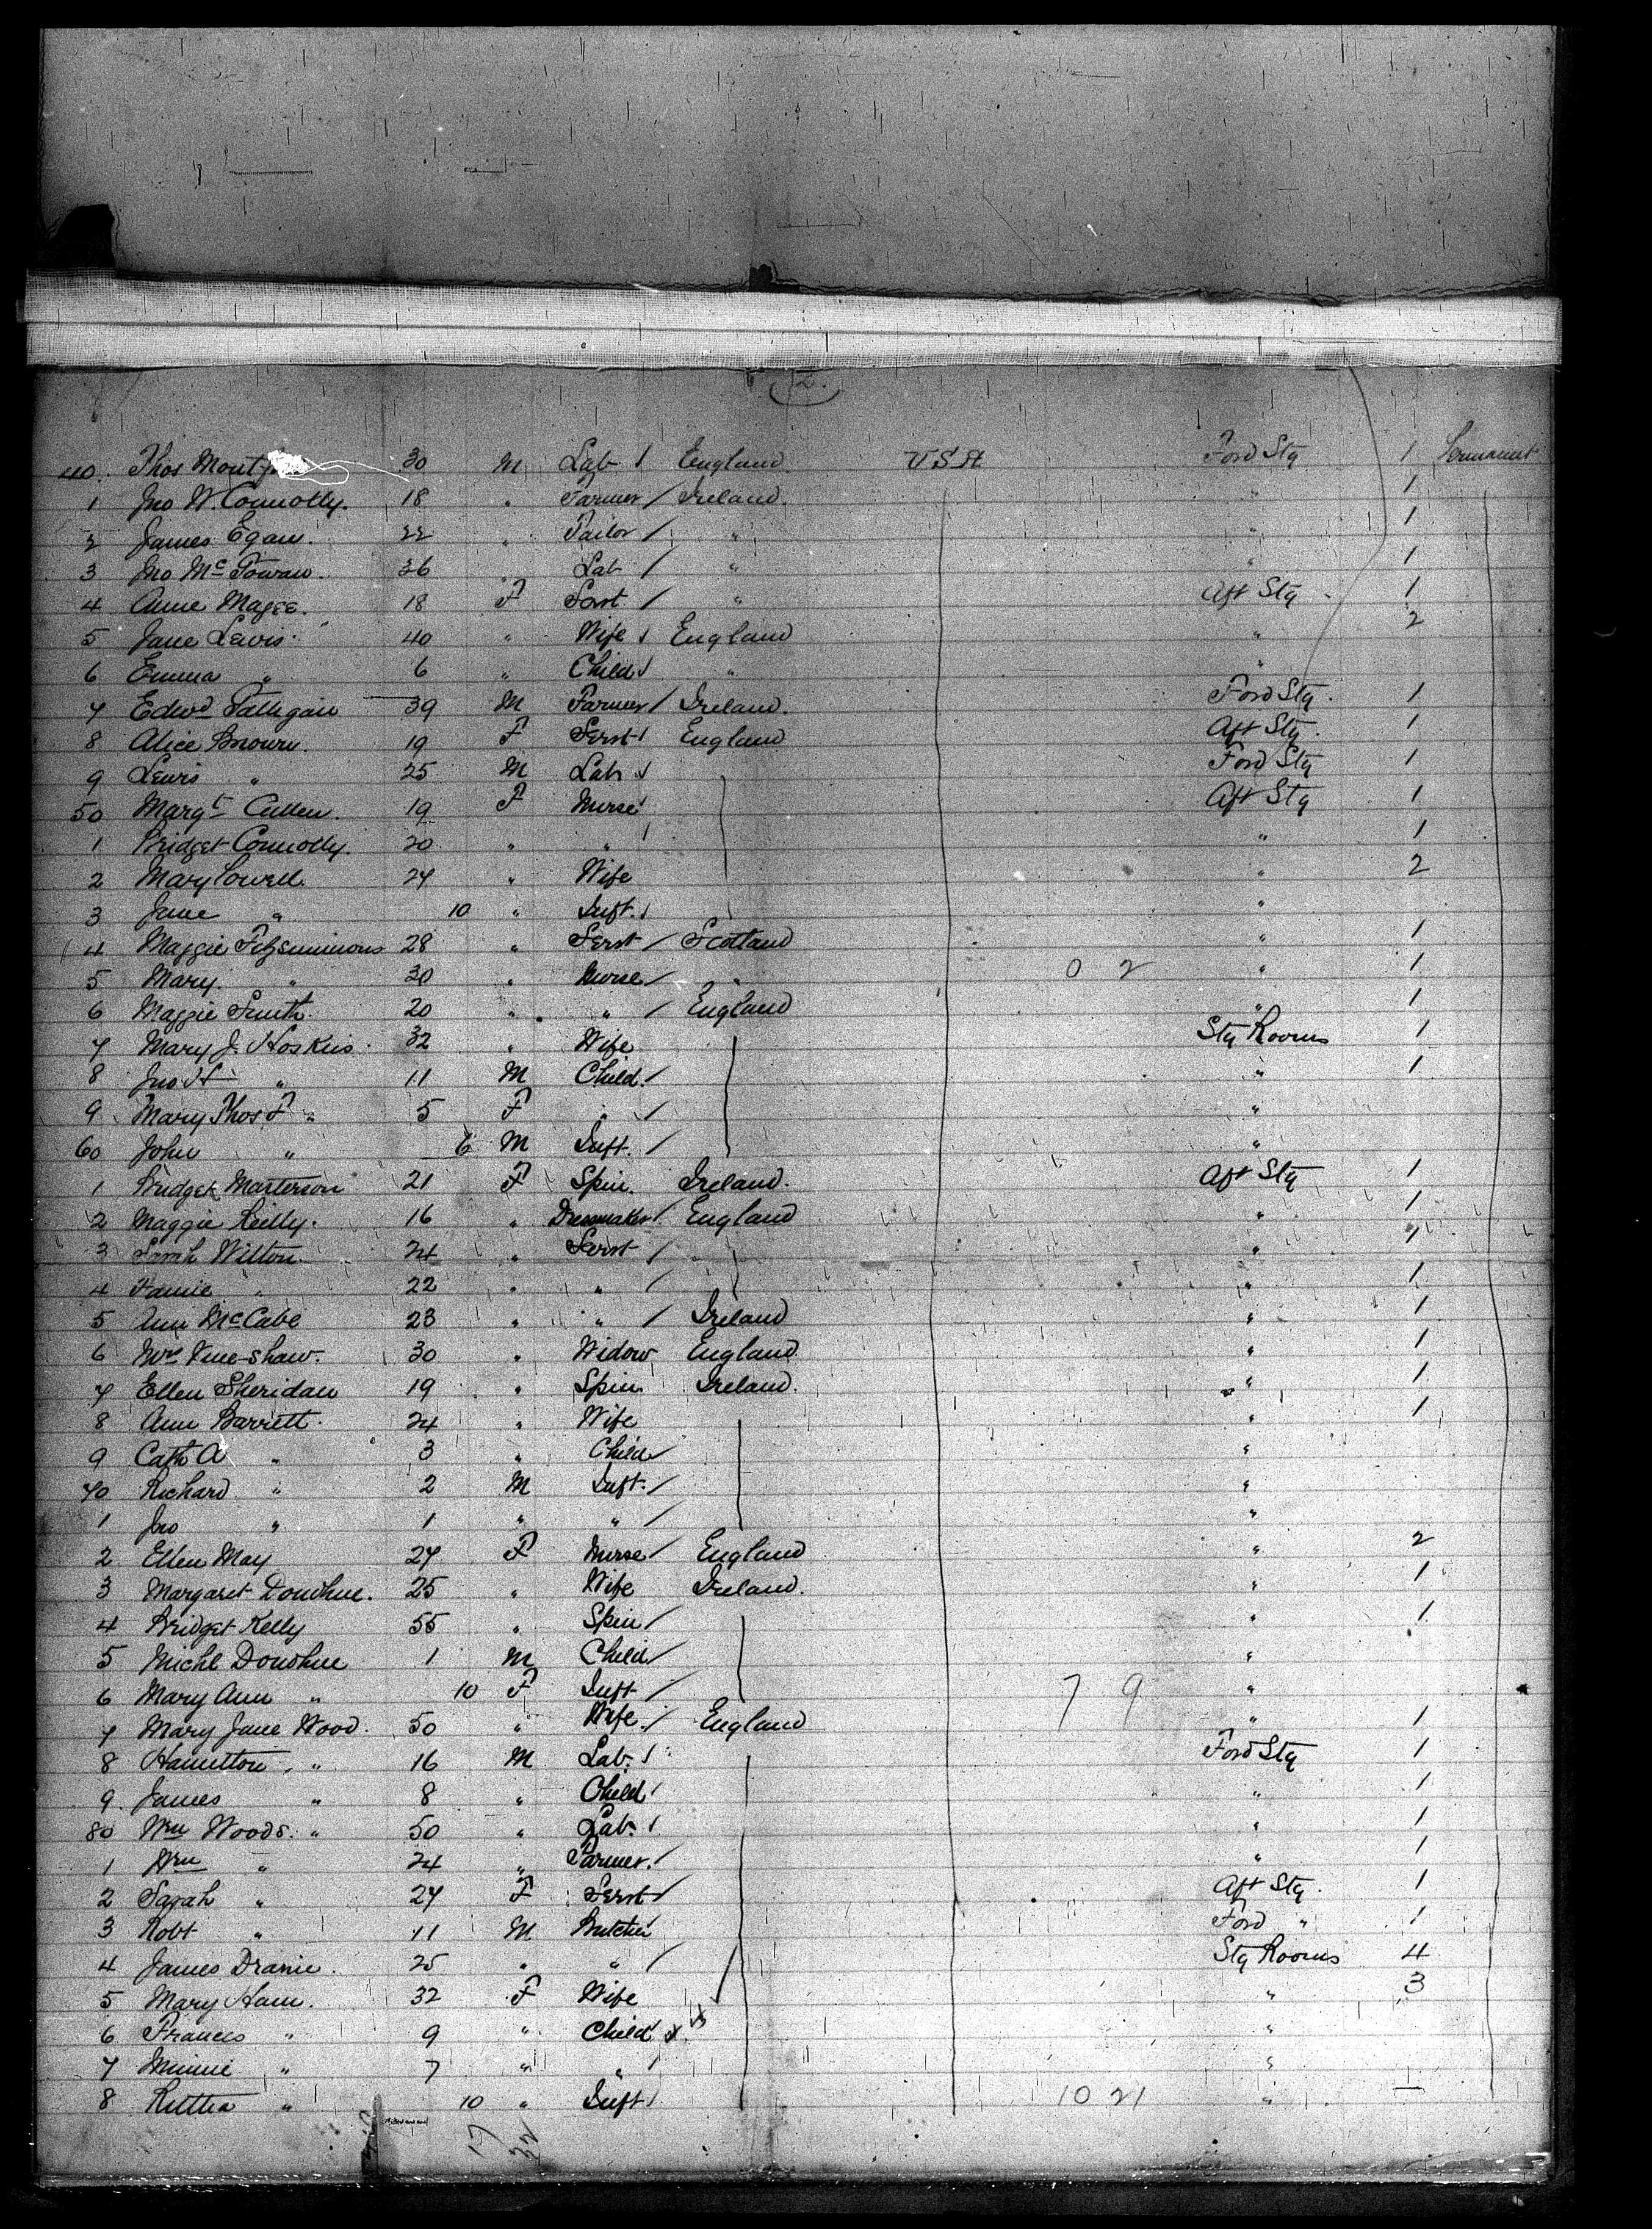 2.
40. Thos 30 M Lab England USA Ford Stg 1 Permanent
1 Jno W. Connolly. 18 " Farmer Ireland. " 1
2 James Egan. 22 " Tailor " " 1
3 Jno Mc 36 " Lab " " 1
4 Anne Magee. 18 F Servt " Aft Stg 1
5 Jane Lewis. 40 " Wife England " 2
6 Emma " 6 " Child " "
7 Edwd 39 M Farmer Ireland. Ford Stg. 1
8 Alice Brown. 19 F Servt England Aft Stg. 1
9 Lewis " 25 M Lab Ford Stg 1
50 Margt Cullen. 19 F Nurse Aft Stg 1
1 Bridget Connolly. 20 " " " 1
2 Mary 24 " Wife " 2
3 Jane " 10 " Inft. "
4 Maggie Fitzsimmons 28 " Servt Scotland " 1
5 Mary. " 30 " Nurse " 0 2 " 1
6 Maggie Smith. 20 " " England " 1
7 Mary J. Hoskins. 32 " Wife Stg Rooms 1
8 Jno H " 11 M Child. " 1
9 Mary Thos F " 5 F " "
60 John " 6 M Inft. "
1 Bridget Masterson 21 F Spin. Ireland. Aft Stg 1
2 Maggie Reilly. 16 " Dressmaker England " 1
3 Sarah Wilton. 24 " Servt " 1
4 " 22 " " " 1
5 Ann McCabe 23 " " Ireland " 1
6 Mrs Vine-shaw. 30 " Widow England " 1
7 Ellen Sheridan 19 " Spin. Ireland. " 1
8 Ann Barrett. 24 " Wife " 1
9 Cath A " 3 " Child "
70 Richard " 2 M Inft. "
1 Jno " 1 " " "
2 Ellen May 27 F Nurse England " 2
3 Margaret Donohue. 25 " Wife Ireland. " 1
4 Bridget Kelly 55 " Spin " 1
5 Michl Donohue 1 M Child "
6 Mary Ann " 10 F Inft 7 9 "
7 Mary Jane Wood. 50 " Wife England " 1
8 Hamilton " 16 M Lab. Ford Stg 1
9. James " 8 " Child " 1
80 Wm Woods. " 50 " Lab. " 1
1 Wm " 24 " Farmer. " 1
2 Sarah " 27 F Servt Aft Stg. 1
3 Robt " 11 M Butcher Ford " 1
4 James 25 " " Stg Rooms 4
5 Mary Ham. 32 F Wife " 3
6 Frances " 9 " Child "
7 Minnie " 7 " " "
8 " 10 " Inft 10 21 "
17